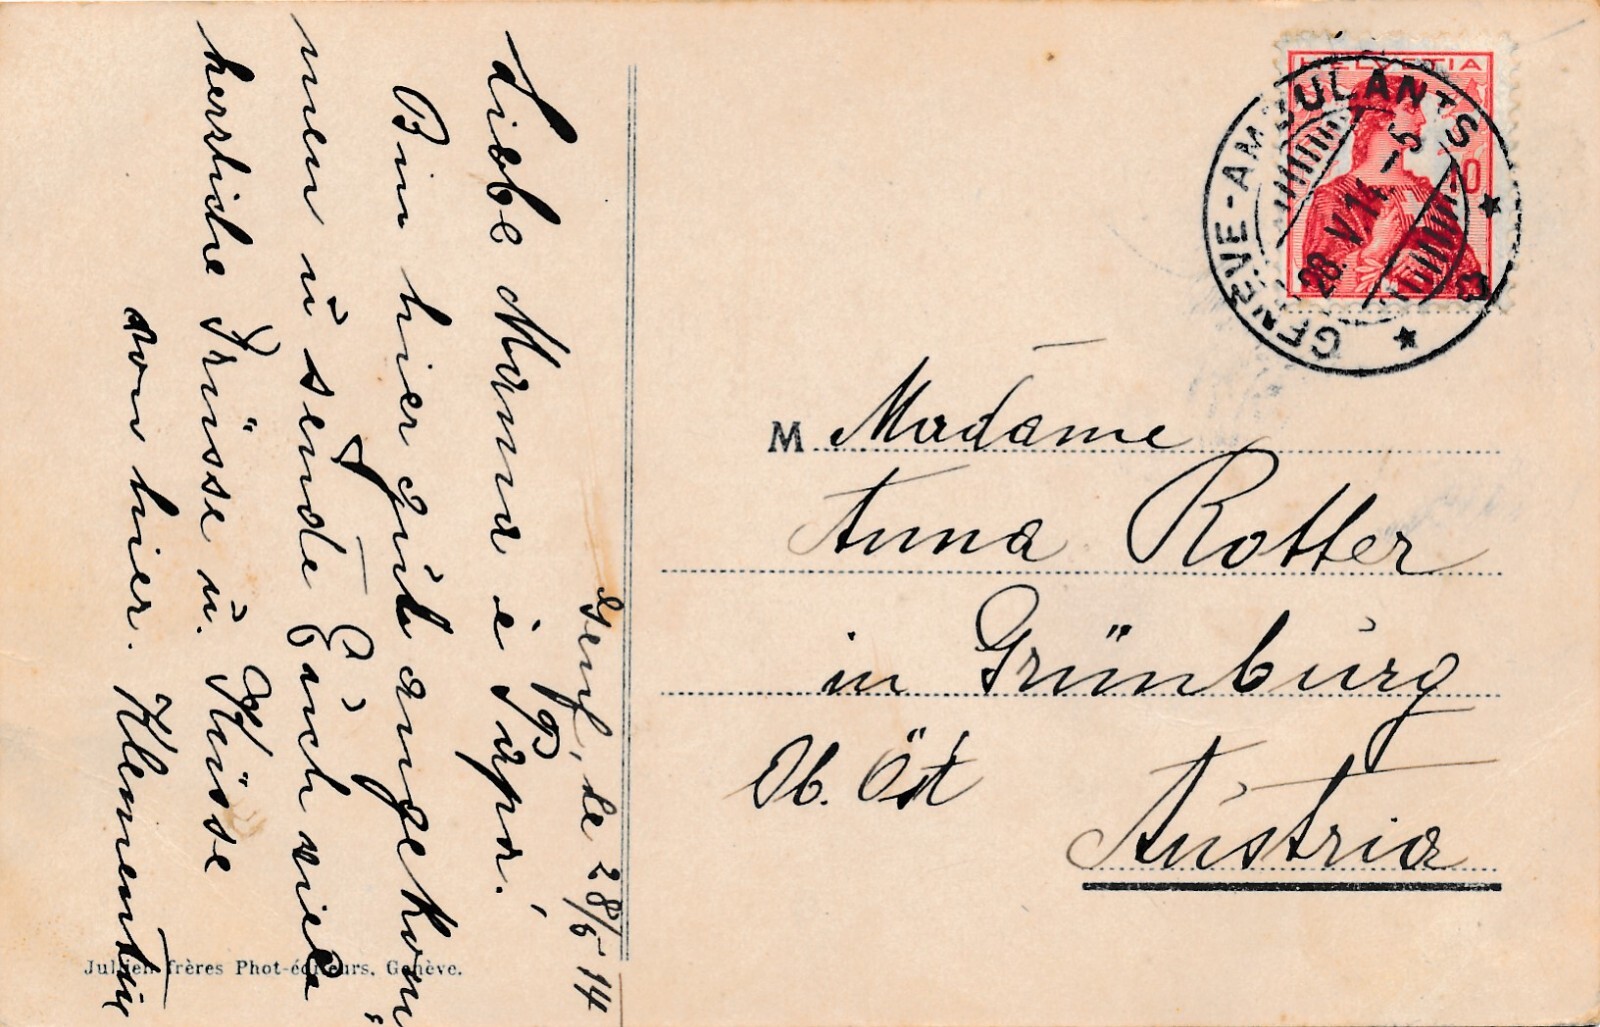 Genf, le 28/5 14
Liebe Mama ú Papa!
Bin hier gút angekom̄
men ú sende Eúch viele
herzliche Grüsse ú. Küsse
von hier. Klementin
HELVETIA
10
GENÈVE-AMBULANTS
28. V. 14 - 5
M Madame
Anna Rotter
in Grünbúrg
Ob. Öst
Aústria
Jullien frères Phot-éditeurs, Genève.